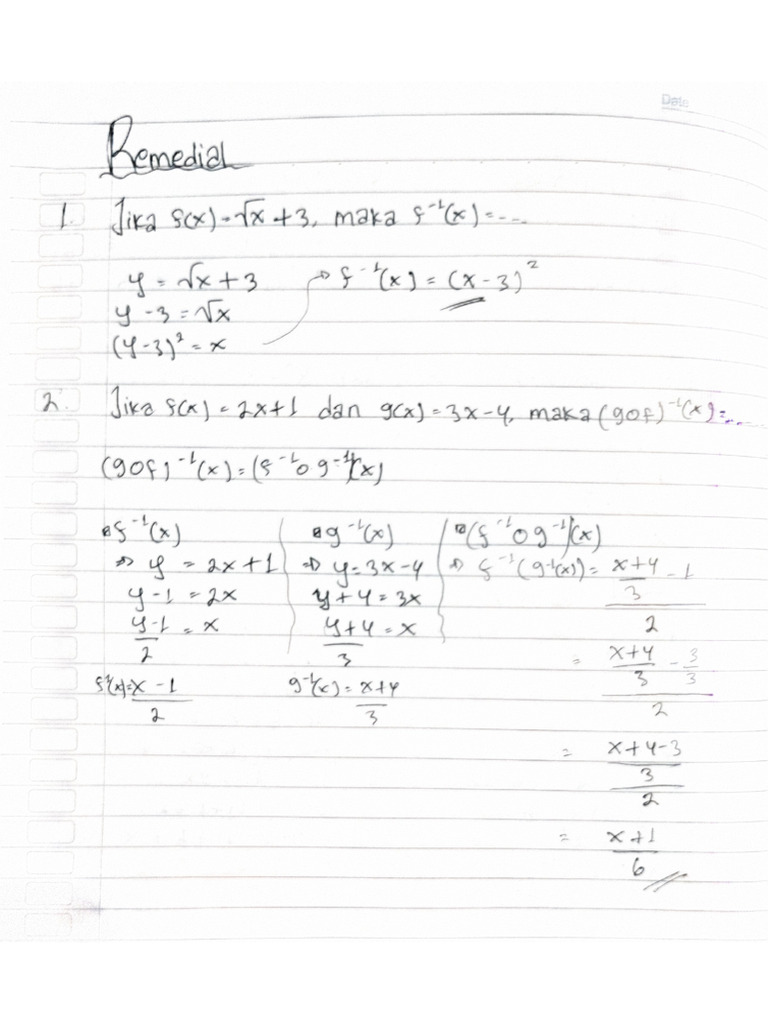 Date
Remedial
1. Jika f(x) = √x + 3, maka f⁻¹(x) = ...
y = √x + 3
y - 3 = √x
(y - 3)² = x
→ f⁻¹(x) = (x - 3)²
2. Jika f(x) = 2x + 1 dan g(x) = 3x - 4, maka (gof)⁻¹(x) = ...
(gof)⁻¹(x) = (f⁻¹og⁻¹)(x)
f⁻¹(x)
⇒ y = 2x + 1
y - 1 = 2x
(y - 1)/2 = x
f⁻¹(x) = (x - 1)/2
g⁻¹(x)
⇒ y = 3x - 4
y + 4 = 3x
(y + 4)/3 = x
g⁻¹(x) = (x + 4)/3
(f⁻¹og⁻¹)(x)
⇒ f⁻¹(g⁻¹(x)) = ((x + 4)/3 - 1)/2
= ((x + 4)/3 - 3/3)/2
= ((x + 4 - 3)/3)/2
= (x + 1)/6